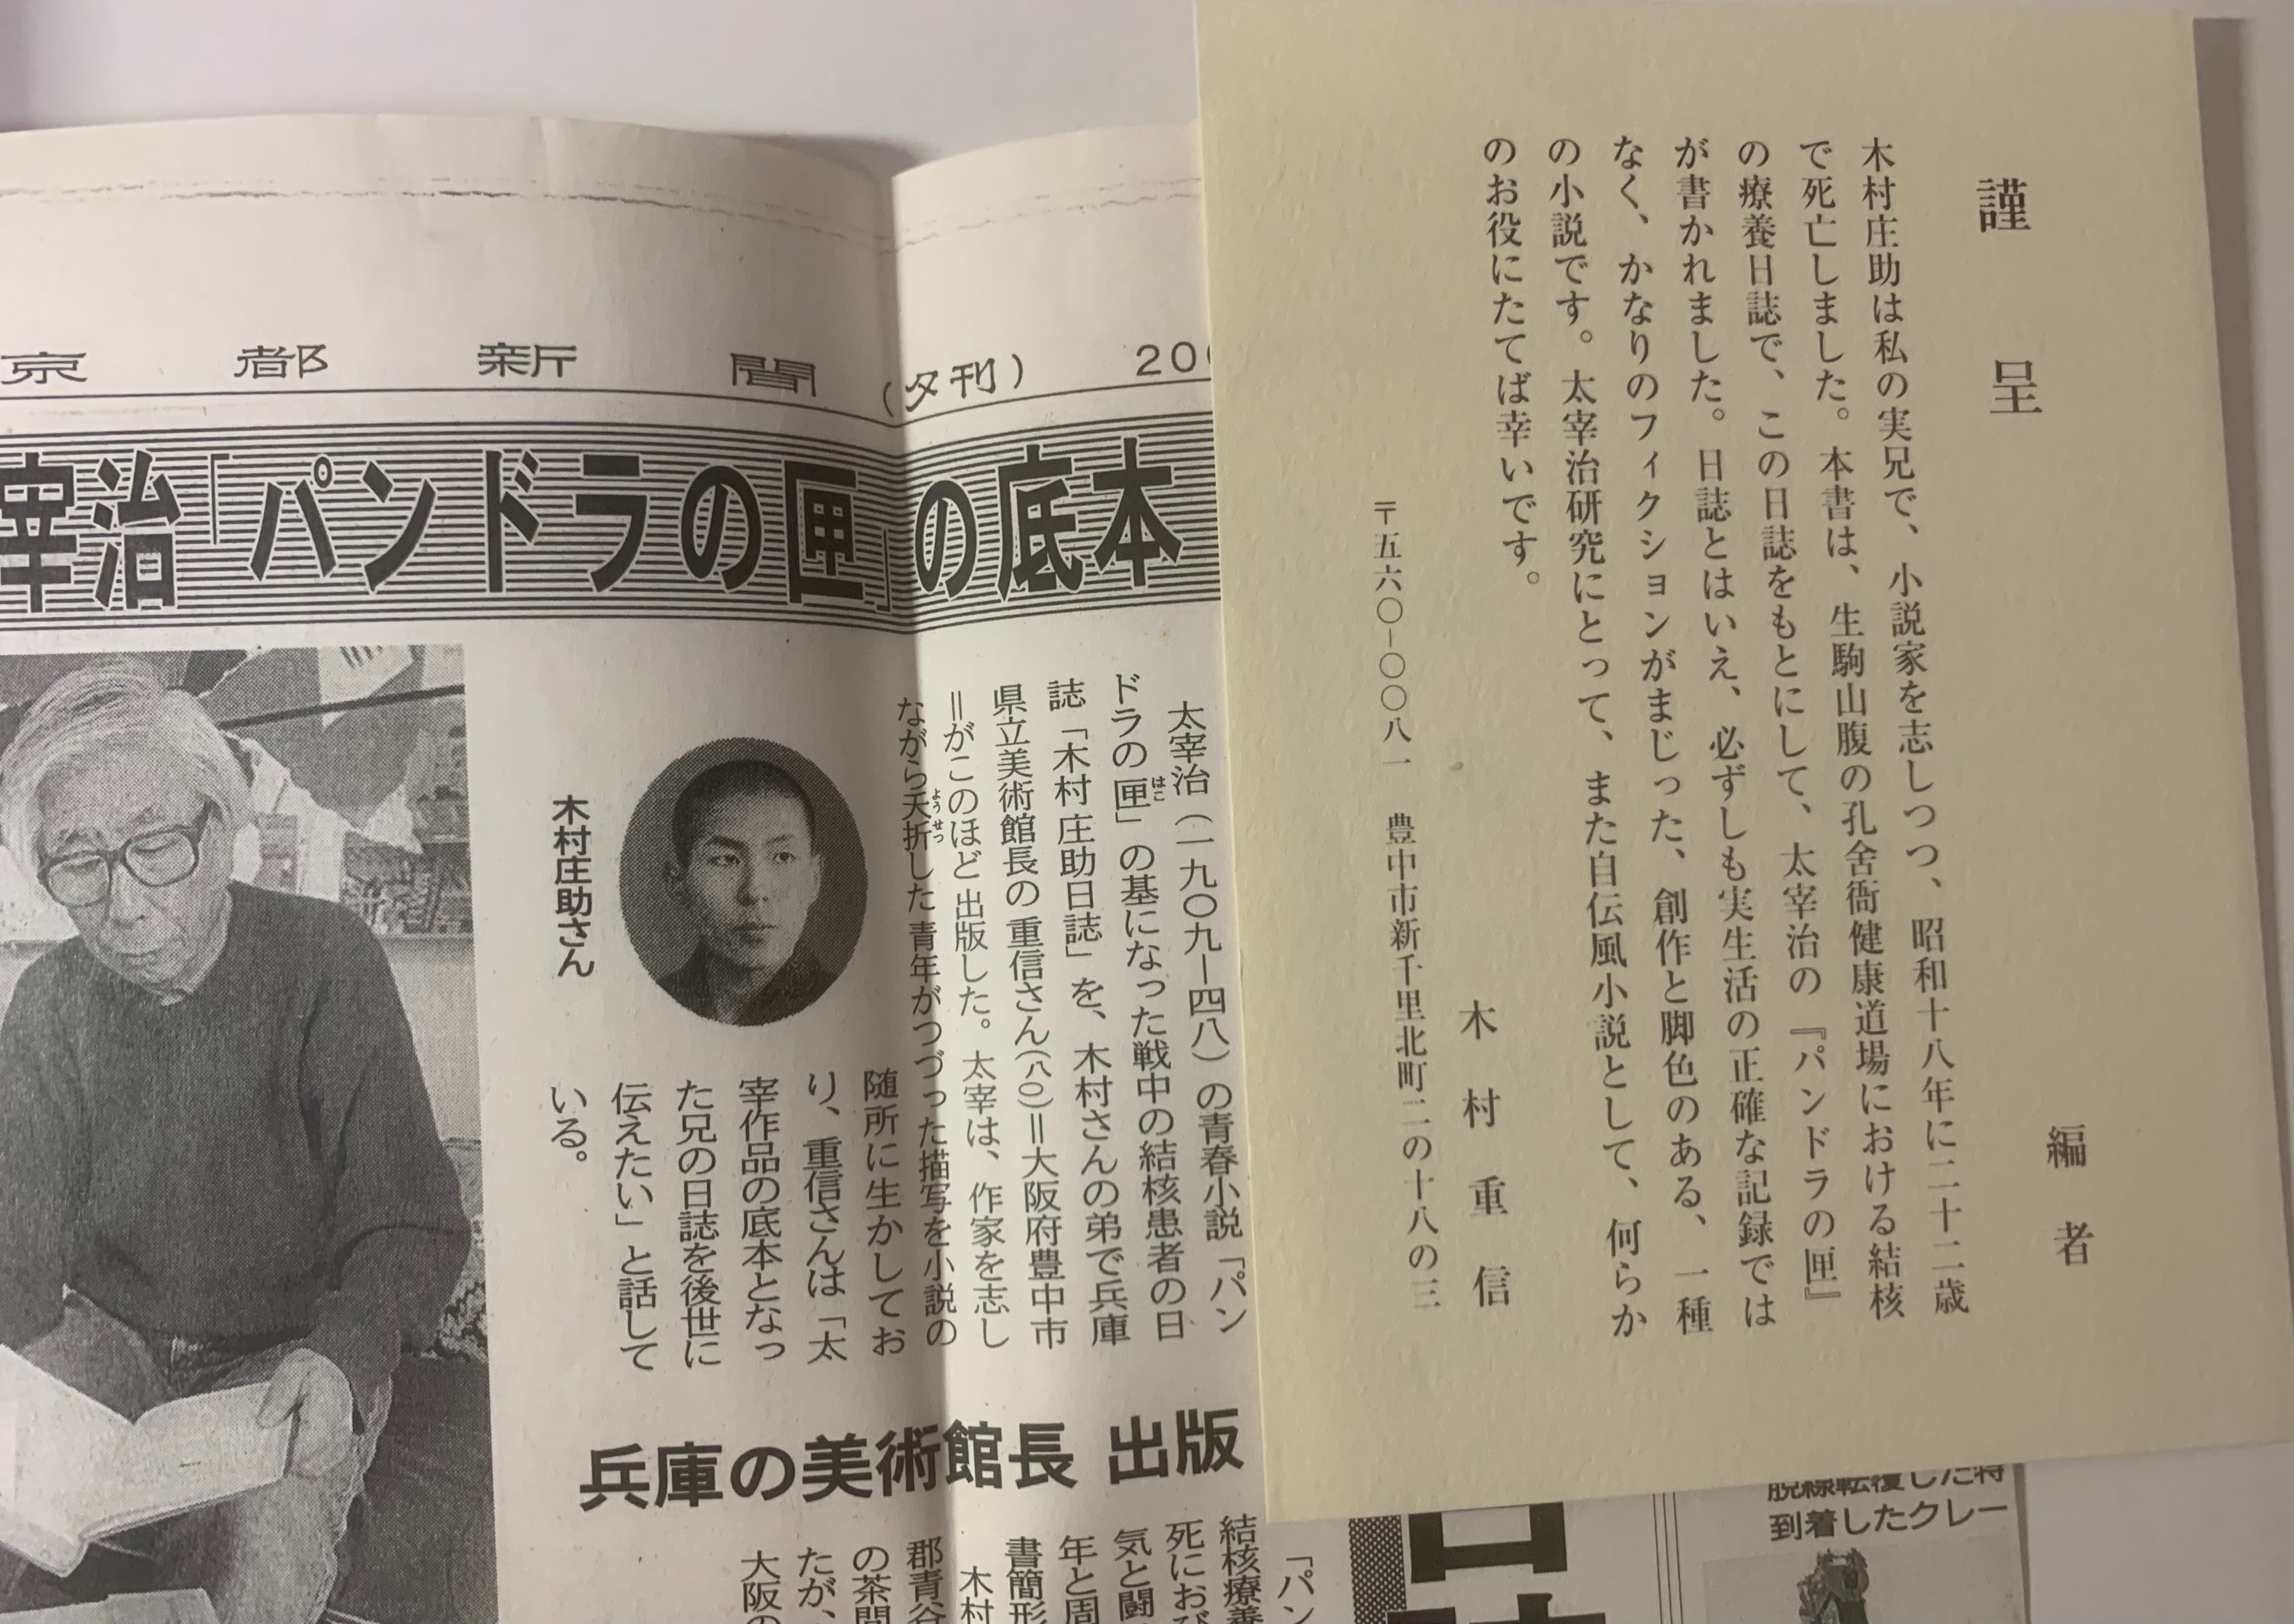 謹呈
編者
木村庄助は私の実兄で、小説家を志しつつ、昭和十八年に二十二歳
で死亡しました。本書は、生駒山腹の孔舎衙健康道場における結核
の療養日誌で、この日誌をもとにして、太宰治の『パンドラの匣』
が書かれました。日誌とはいえ、必ずしも実生活の正確な記録では
なく、かなりのフィクションがまじった、創作と脚色のある、一種
の小説です。太宰治研究にとって、また自伝風小説として、何らか
のお役にたてば幸いです。
木村重信
〒五六〇-〇〇八一 豊中市新千里北町二の十八の三
京都新聞(夕刊) 200
宰治「パンドラの匣」の底本
太宰治(一九〇九—四八)の青春小説「パン
ドラの匣」の基になった戦中の結核患者の日
はこ
誌「木村庄助日誌」を、木村さんの弟で兵庫
県立美術館長の重信さん(八〇)=大阪府豊中市
=がこのほど出版した。太宰は、作家を志し
ながら夭折した青年がつづった描写を小説の
ようせつ
随所に生かしてお
り、重信さんは「太
宰作品の底本となっ
た兄の日誌を後世に
伝えたい」と話して
いる。
木村庄助さん
兵庫の美術館長 出版
「パン
結核療養
死におび
気と闘
年と周
書簡形
木村
郡青谷
の茶問
たが、
大阪の
脱線転覆した特
到着したクレー